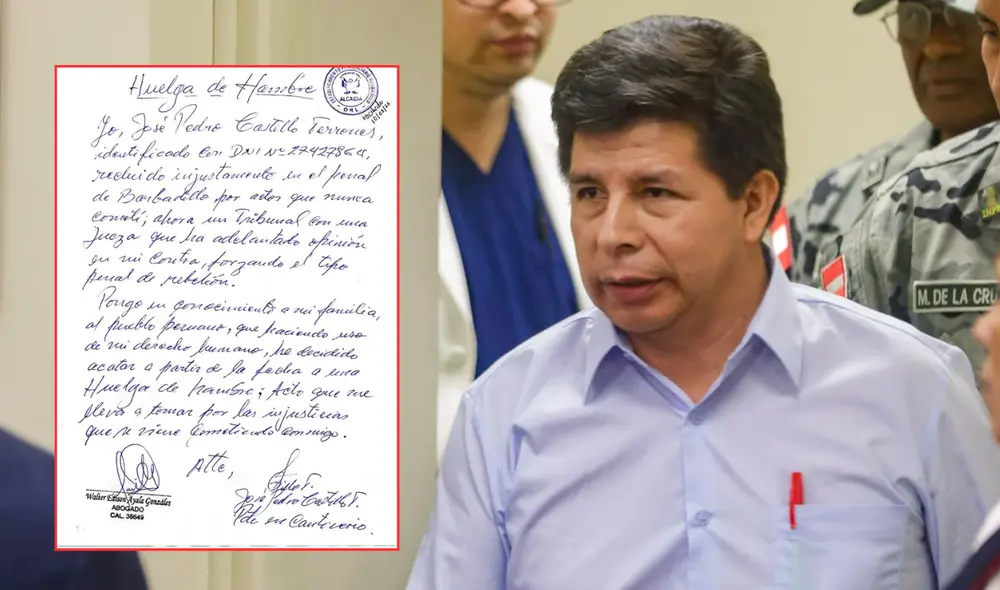 Huelga de Hambre
ALCAIDIA
Yo, José Pedro Castillo Terrones,
identificado con DNI Nº 27427864,
recluido injustamente en el penal
de Barbadillo por actos que nunca
cometí; ahora un Tribunal con una
Jueza que ha adelantado opinión
en mi contra, forzando el tipo
penal de rebelión.
Pongo en conocimiento a mi familia,
al pueblo peruano, que haciendo uso
de mi derecho humano, he decidido
acatar a partir de la fecha a una
Huelga de hambre; Acto que me
lleva a tomar por las injusticias
que se viene cometiendo conmigo.
Atte,
Walter Edison Ayala Gonzáles
ABOGADO
CAL. 36649
José Pedro Castillo T.
Pdte en Cautiverio.
M. DE LA CRU